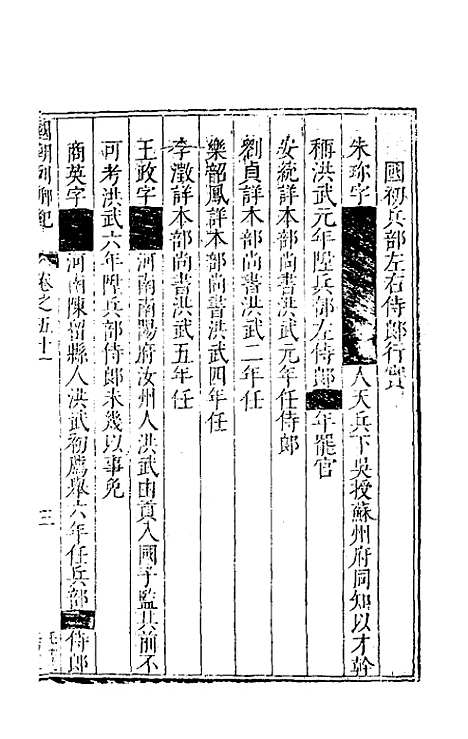 國初兵部左右侍郎行實
朱珎字人天兵下吳授蘇州府同知以才幹
稱洪武元年陞兵部左侍郎年罷官
安統詳本部尚書洪武元年任侍郎
劉貞詳本部尚書洪武二年任
樂韶鳳詳本部尚書洪武四年任
李澂詳本部尚書洪武五年任
王政字河南南陽府汝州人洪武由貢入國子監其前不
可考洪武六年陞兵部侍郎未幾以事免
商英字河南陳留縣人洪武初薦舉六年任兵部侍郎
國朝列卿紀 卷之五十一 三